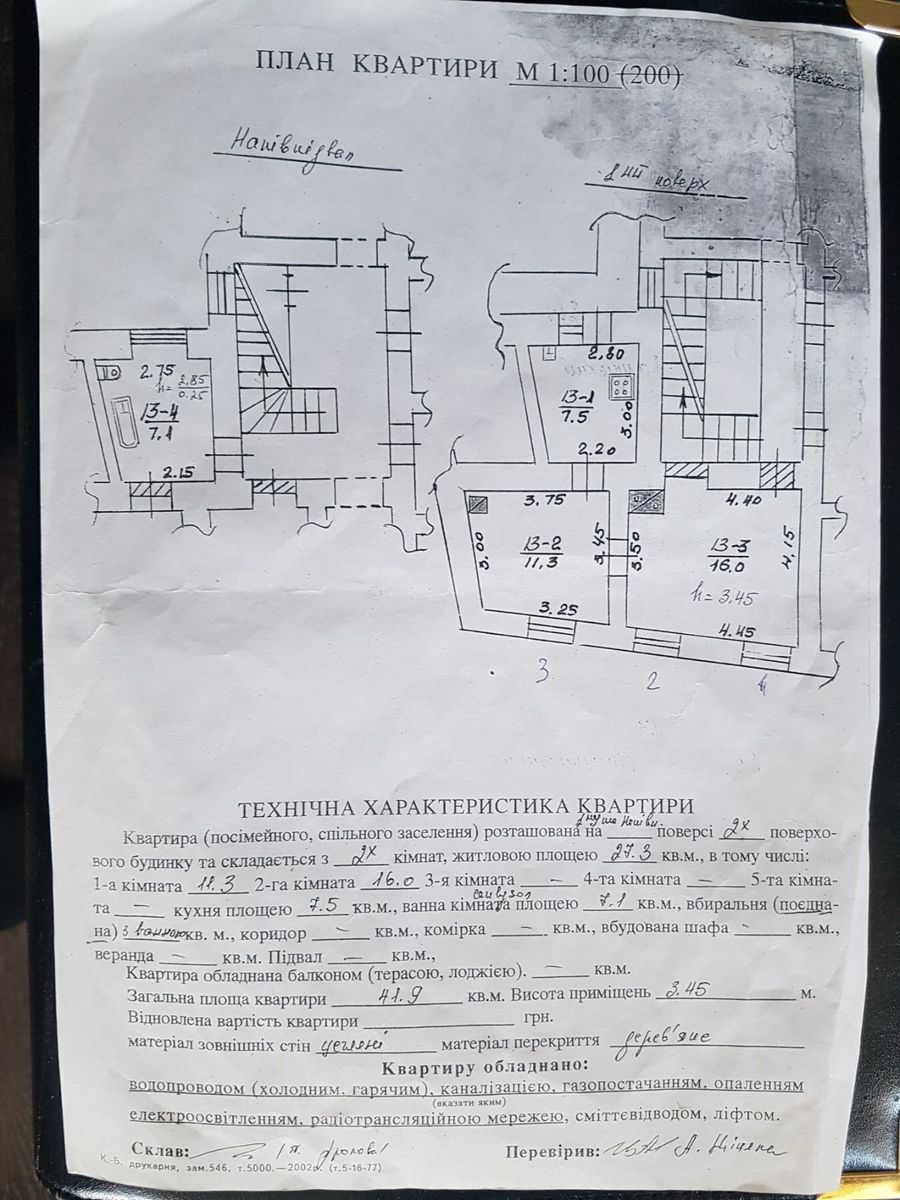 ПЛАН КВАРТИРИ М 1:100 (200)
Напівпідвал
1ий поверх
2.75
h= 2,85
0.25
13-4
7.1
2.15
2.80
13-1
7.5
3.00
2.20
3.75
4.40
3.00
13-2
11,3
3.45
3.50
13-3
16.0
4.15
h= 3.45
3.25
4.45
3
2
1
ТЕХНІЧНА ХАРАКТЕРИСТИКА КВАРТИРИ
Квартира (посімейного, спільного заселення) розташована на поверсі 2х поверхо-
вого будинку та складається з 2х кімнат, житловою площею 27.3 кв.м., в тому числі:
1-а кімната 11.3 2-га кімната 16.0 3-я кімната — 4-та кімната — 5-та кімна-
санвузол
та — кухня площею 7.5 кв.м., ванна кімната площею 7.1 кв.м., вбиральня (поєдна-
на) з ванною кв. м., коридор — кв.м., комірка — кв.м., вбудована шафа - кв.м.,
веранда — кв.м. Підвал — кв.м.,
Квартира обладнана балконом (терасою, лоджією). — кв.м.
Загальна площа квартири 41.9 кв.м. Висота приміщень 3.45 м.
Відновлена вартість квартири грн.
матеріал зовнішніх стін цегляні матеріал перекриття дерев'яне
Квартиру обладнано:
водопроводом (холодним, гарячим), каналізацією, газопостачанням, опаленням
(вказати яким)
електроосвітленням, радіотрансляційною мережею, сміттєвідводом, ліфтом.
Склав: Перевірив:
К.-Б. друкарня, зам.546, т.5000.—2002р. (т.5-16-77)